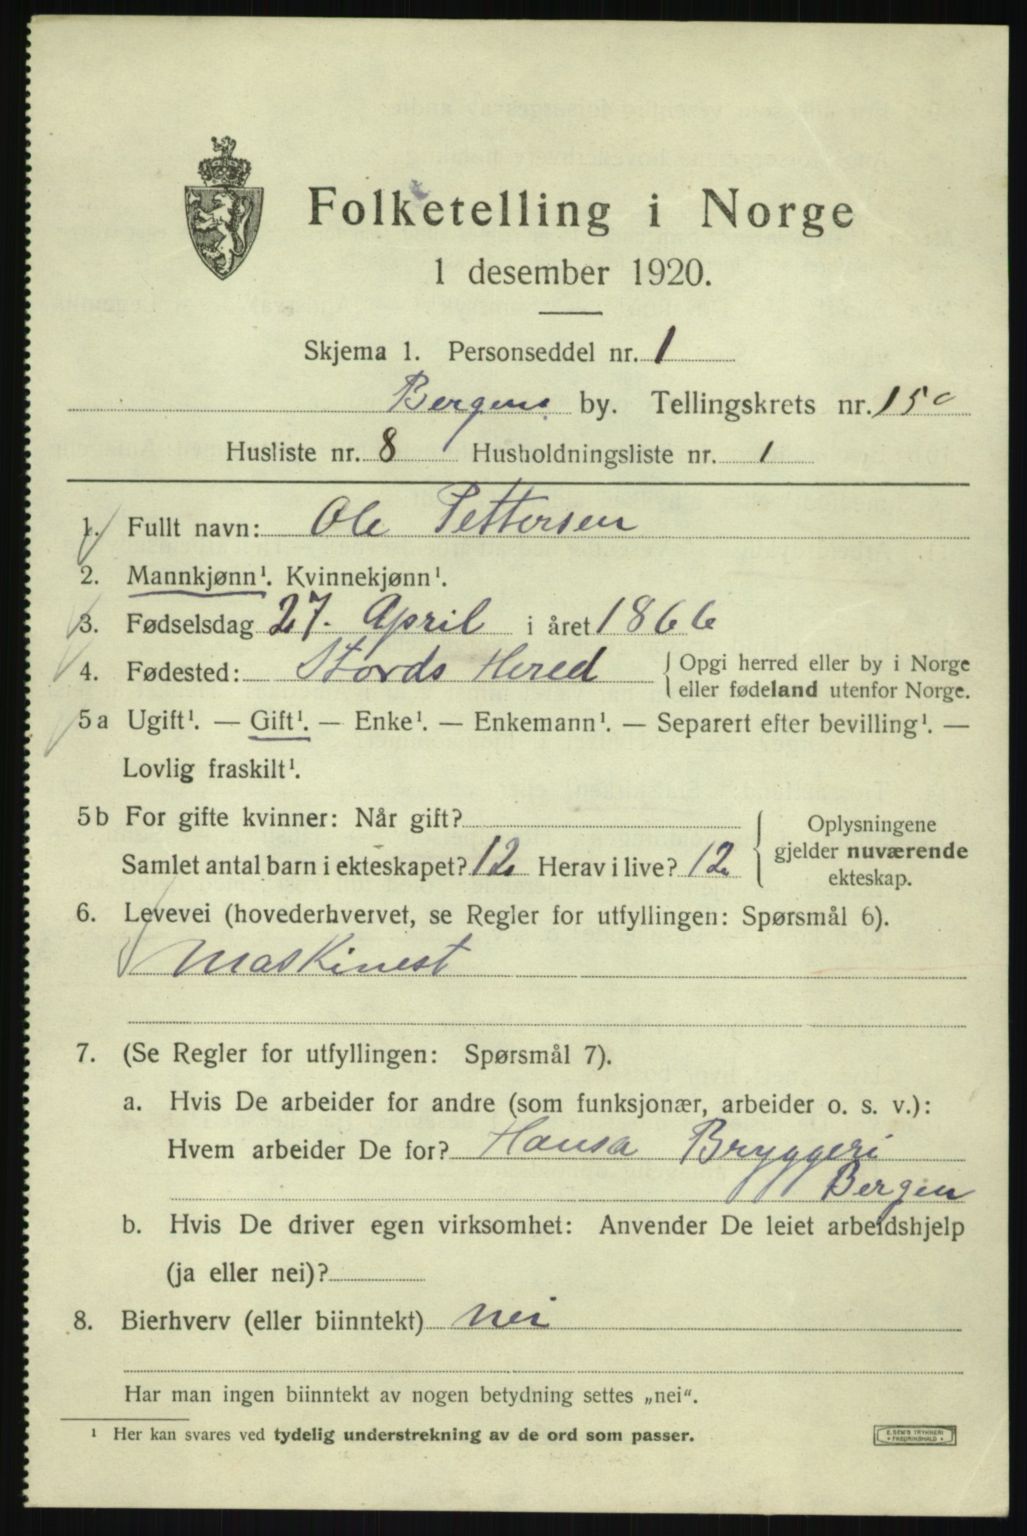 Folketelling i Norge
1 desember 1920.
Skjema 1. Personseddel nr. 1
Bergens by. Tellingskrets nr. 150
Husliste nr. 8 Husholdningsliste nr. 1
1. Fullt navn: Ole Pettersen
2. Mannkjønn¹. Kvinnekjønn¹.
3. Fødselsdag 27. April i året 1866
4. Fødested: Stords Hered { Opgi herred eller by i Norge
eller fødeland utenfor Norge.
5a Ugift¹. — Gift¹. — Enke¹. — Enkemann¹. — Separert efter bevilling¹. —
Lovlig fraskilt¹.
5b For gifte kvinner: Når gift?
Samlet antal barn i ekteskapet? 12 Herav i live? 12
{ Oplysningene
gjelder nuværende
ekteskap.
6. Levevei (hovederhvervet, se Regler for utfyllingen: Spørsmål 6).
Maskinest
7. (Se Regler for utfyllingen: Spørsmål 7).
a. Hvis De arbeider for andre (som funksjonær, arbeider o. s. v.):
Hvem arbeider De for? Hansa Bryggeri
Bergen
b. Hvis De driver egen virksomhet: Anvender De leiet arbeidshjelp
(ja eller nei)?
8. Bierhverv (eller biinntekt) nei
Har man ingen biinntekt av nogen betydning settes „nei".
¹ Her kan svares ved tydelig understrekning av de ord som passer.
E. SEM'S TRYKKERI
• FREDRIKSHALD •